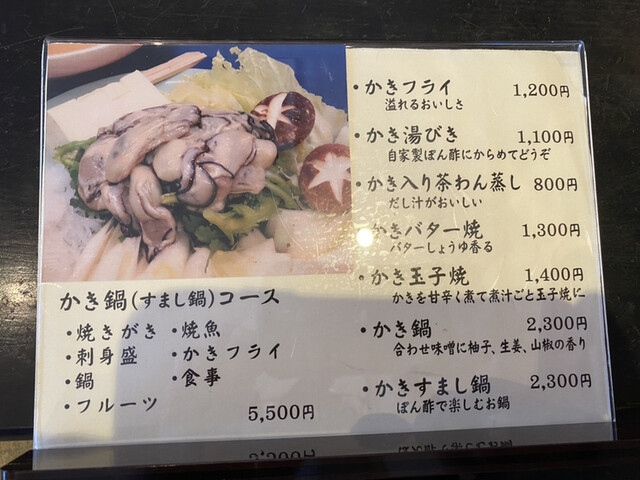 かき鍋(すまし鍋)コース
・焼きがき ・焼魚
・刺身盛 ・かきフライ
・鍋 ・食事
・フルーツ
5,500円
・かきフライ 1,200円
溢れるおいしさ
・かき湯びき 1,100円
自家製ぽん酢にからめてどうぞ
・かき入り茶わん蒸し 800円
だし汁がおいしい
・かきバター焼 1,300円
バターしょうゆ香る
・かき玉子焼 1,400円
かきを甘辛く煮て煮汁ごと玉子焼に
・かき鍋 2,300円
合わせ味噌に柚子、生姜、山椒の香り
・かきすまし鍋 2,300円
ぽん酢で楽しむお鍋